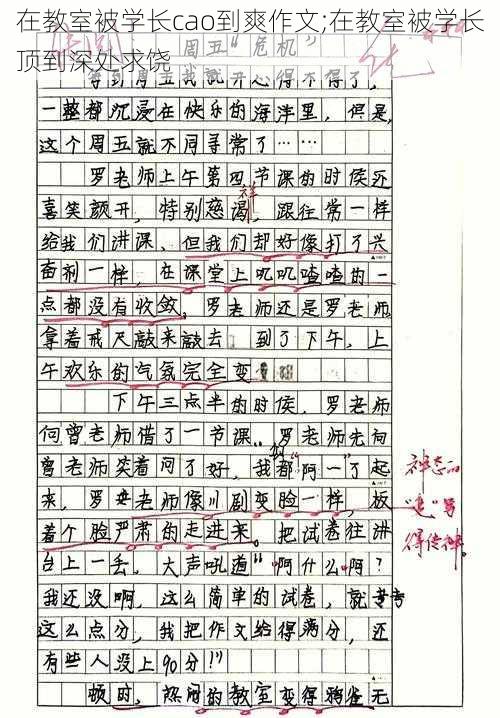 在教室被学长cao到爽作文;在教室被学长
顶到深处求饶
周五“危机”
等到周五我就开心得不得了，
一整都沉浸在快乐的海洋里，但是，
这个周五就不同寻常了……
罗老师上午第四节课的时候还
祥
喜笑颜开，特别慈渴，跟往常一样
给我们讲课，但我们却好像打了兴
奋剂一样，在课堂上叽叽喳喳的一
点都没有收敛。罗老师还是罗老师，
拿着戒尺敲来敲去。到了下午，上
午欢乐的气氛完全变
下午三点半的时候，罗老师
向曾老师借了一节课。罗老师先向
曾老师笑着问了好，我都“阿一”了起
来，罗老师像川剧变脸一样，板
神态
着个脸严肃的走进来。把试卷往讲
得传神。
台上一丢，大声吼道“啊什么啊？
我还没啊，这么简单的试卷，就考
这么点分，我把作文给得满分，还
有些人没上90分！”
顿时，热闹的教室变得鸦雀无